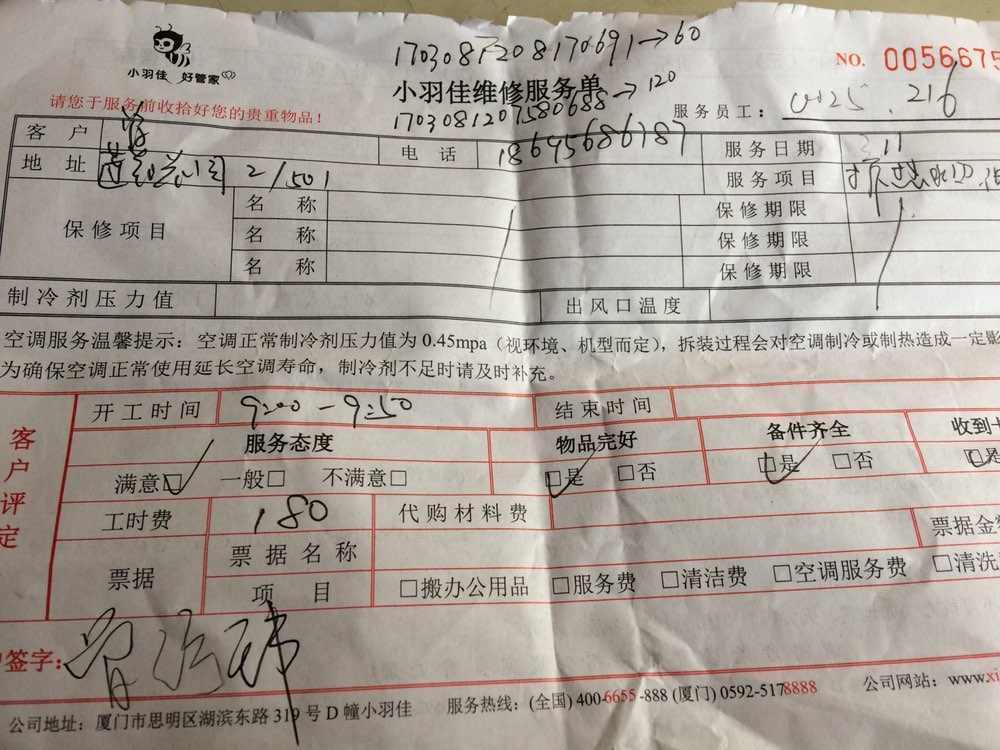 170308120817 0691→60
小羽佳 好管家
NO. 0056675
小羽佳维修服务单
请您于服务前收拾好您的贵重物品！
170308120758 0688→120
服务员工： 216
客 户 曾 电 话 18695686787 服务日期 3.11
地 址 2/501 服务项目
保修项目 名 称 保修期限
名 称 保修期限
名 称 保修期限
制冷剂压力值 出风口温度
空调服务温馨提示：空调正常制冷剂压力值为 0.45mpa（视环境、机型而定），拆装过程会对空调制冷或制热造成一定影
为确保空调正常使用延长空调寿命，制冷剂不足时请及时补充。
客户评定
开工时间 9:00-9:50 结束时间
服务态度 物品完好 备件齐全 收到
满意□ 一般□ 不满意□ □是 □否 □是 □否 □是
工时费 180 代购材料费
票据 票据名称 票据金
项 目 □搬办公用品 □服务费 □清洁费 □空调服务费 □清洗
签字：
公司地址：厦门市思明区湖滨东路 319 号 D 幢小羽佳 服务热线：(全国) 400-6655-888 (厦门) 0592-5178888 公司网站：www.xi